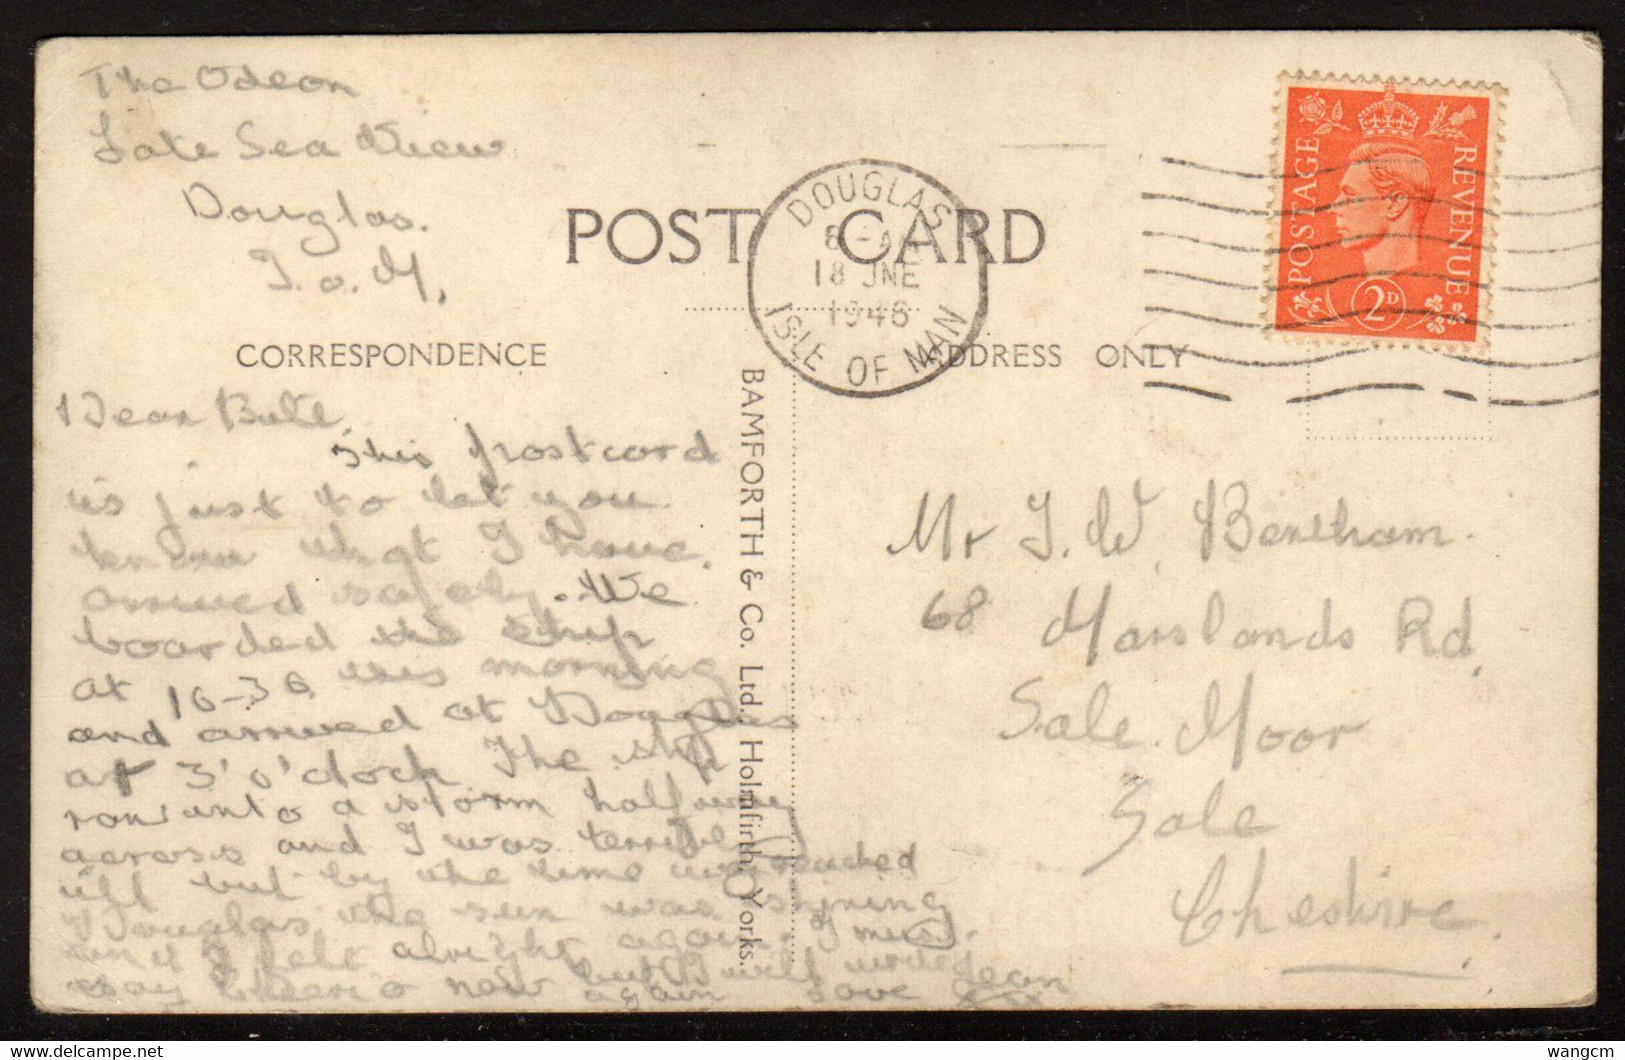 The Odeon
Late Sea View
Douglas.
I.o.M,
POST CARD
DOUGLAS
18 JNE
1946
ISLE OF MAN
POSTAGE
REVENUE
2D
CORRESPONDENCE
ADDRESS ONLY
Dear Bill.
This postcard
is just to let you
know that I have
arrived safely. We
boarded the ship
at 10-30 this morning
and arrived at Douglas
at 3'o'clock The ship
ran into a storm halfway
across and I was terribly
ill but by the time we reached
Douglas the sun was shining
and I felt alright again. I must
say cheerio now but I will write
again love Jean
BAMFORTH & Co. Ltd., Holmfirth, Yorks.
Mr J. W. Bentham.
68 Marslands Rd,
Sale Moor
Sale
Cheshire.
delcampe.net
wangcm